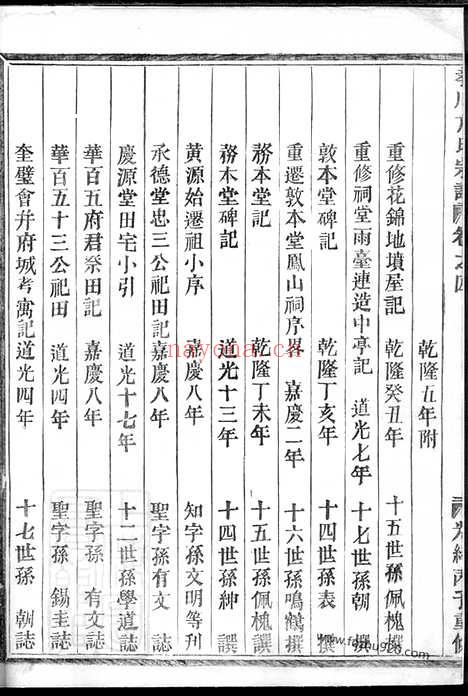 乾隆五年附
重修花錦地墳屋記 乾隆癸丑年 十五世孫佩槐撰
重修祠堂雨臺連造中亭記 道光七年 十七世孫朝撰
敦本堂碑記 乾隆丁亥年 十四世孫表撰
重遷敦本堂鳳山祠序畧 嘉慶二年 十六世孫鳴鶴撰
務本堂記 乾隆丁未年 十五世孫佩槐譔
務本堂碑記 道光十三年 十四世孫紳譔
黄源始遷祖小序 嘉慶八年 知字孫文明等刋
承德堂忠三公祀田記嘉慶八年 聖字孫有文誌
慶源堂田宅小引 道光十七年 十二世孫學道誌
華百五府君祭田記 嘉慶八年 聖字孫有文誌
華百五十三公祀田 道光四年 聖字孫錫圭誌
奎璧會幷府城考寓記道光四年 十七世孫朝誌
nayona.cn